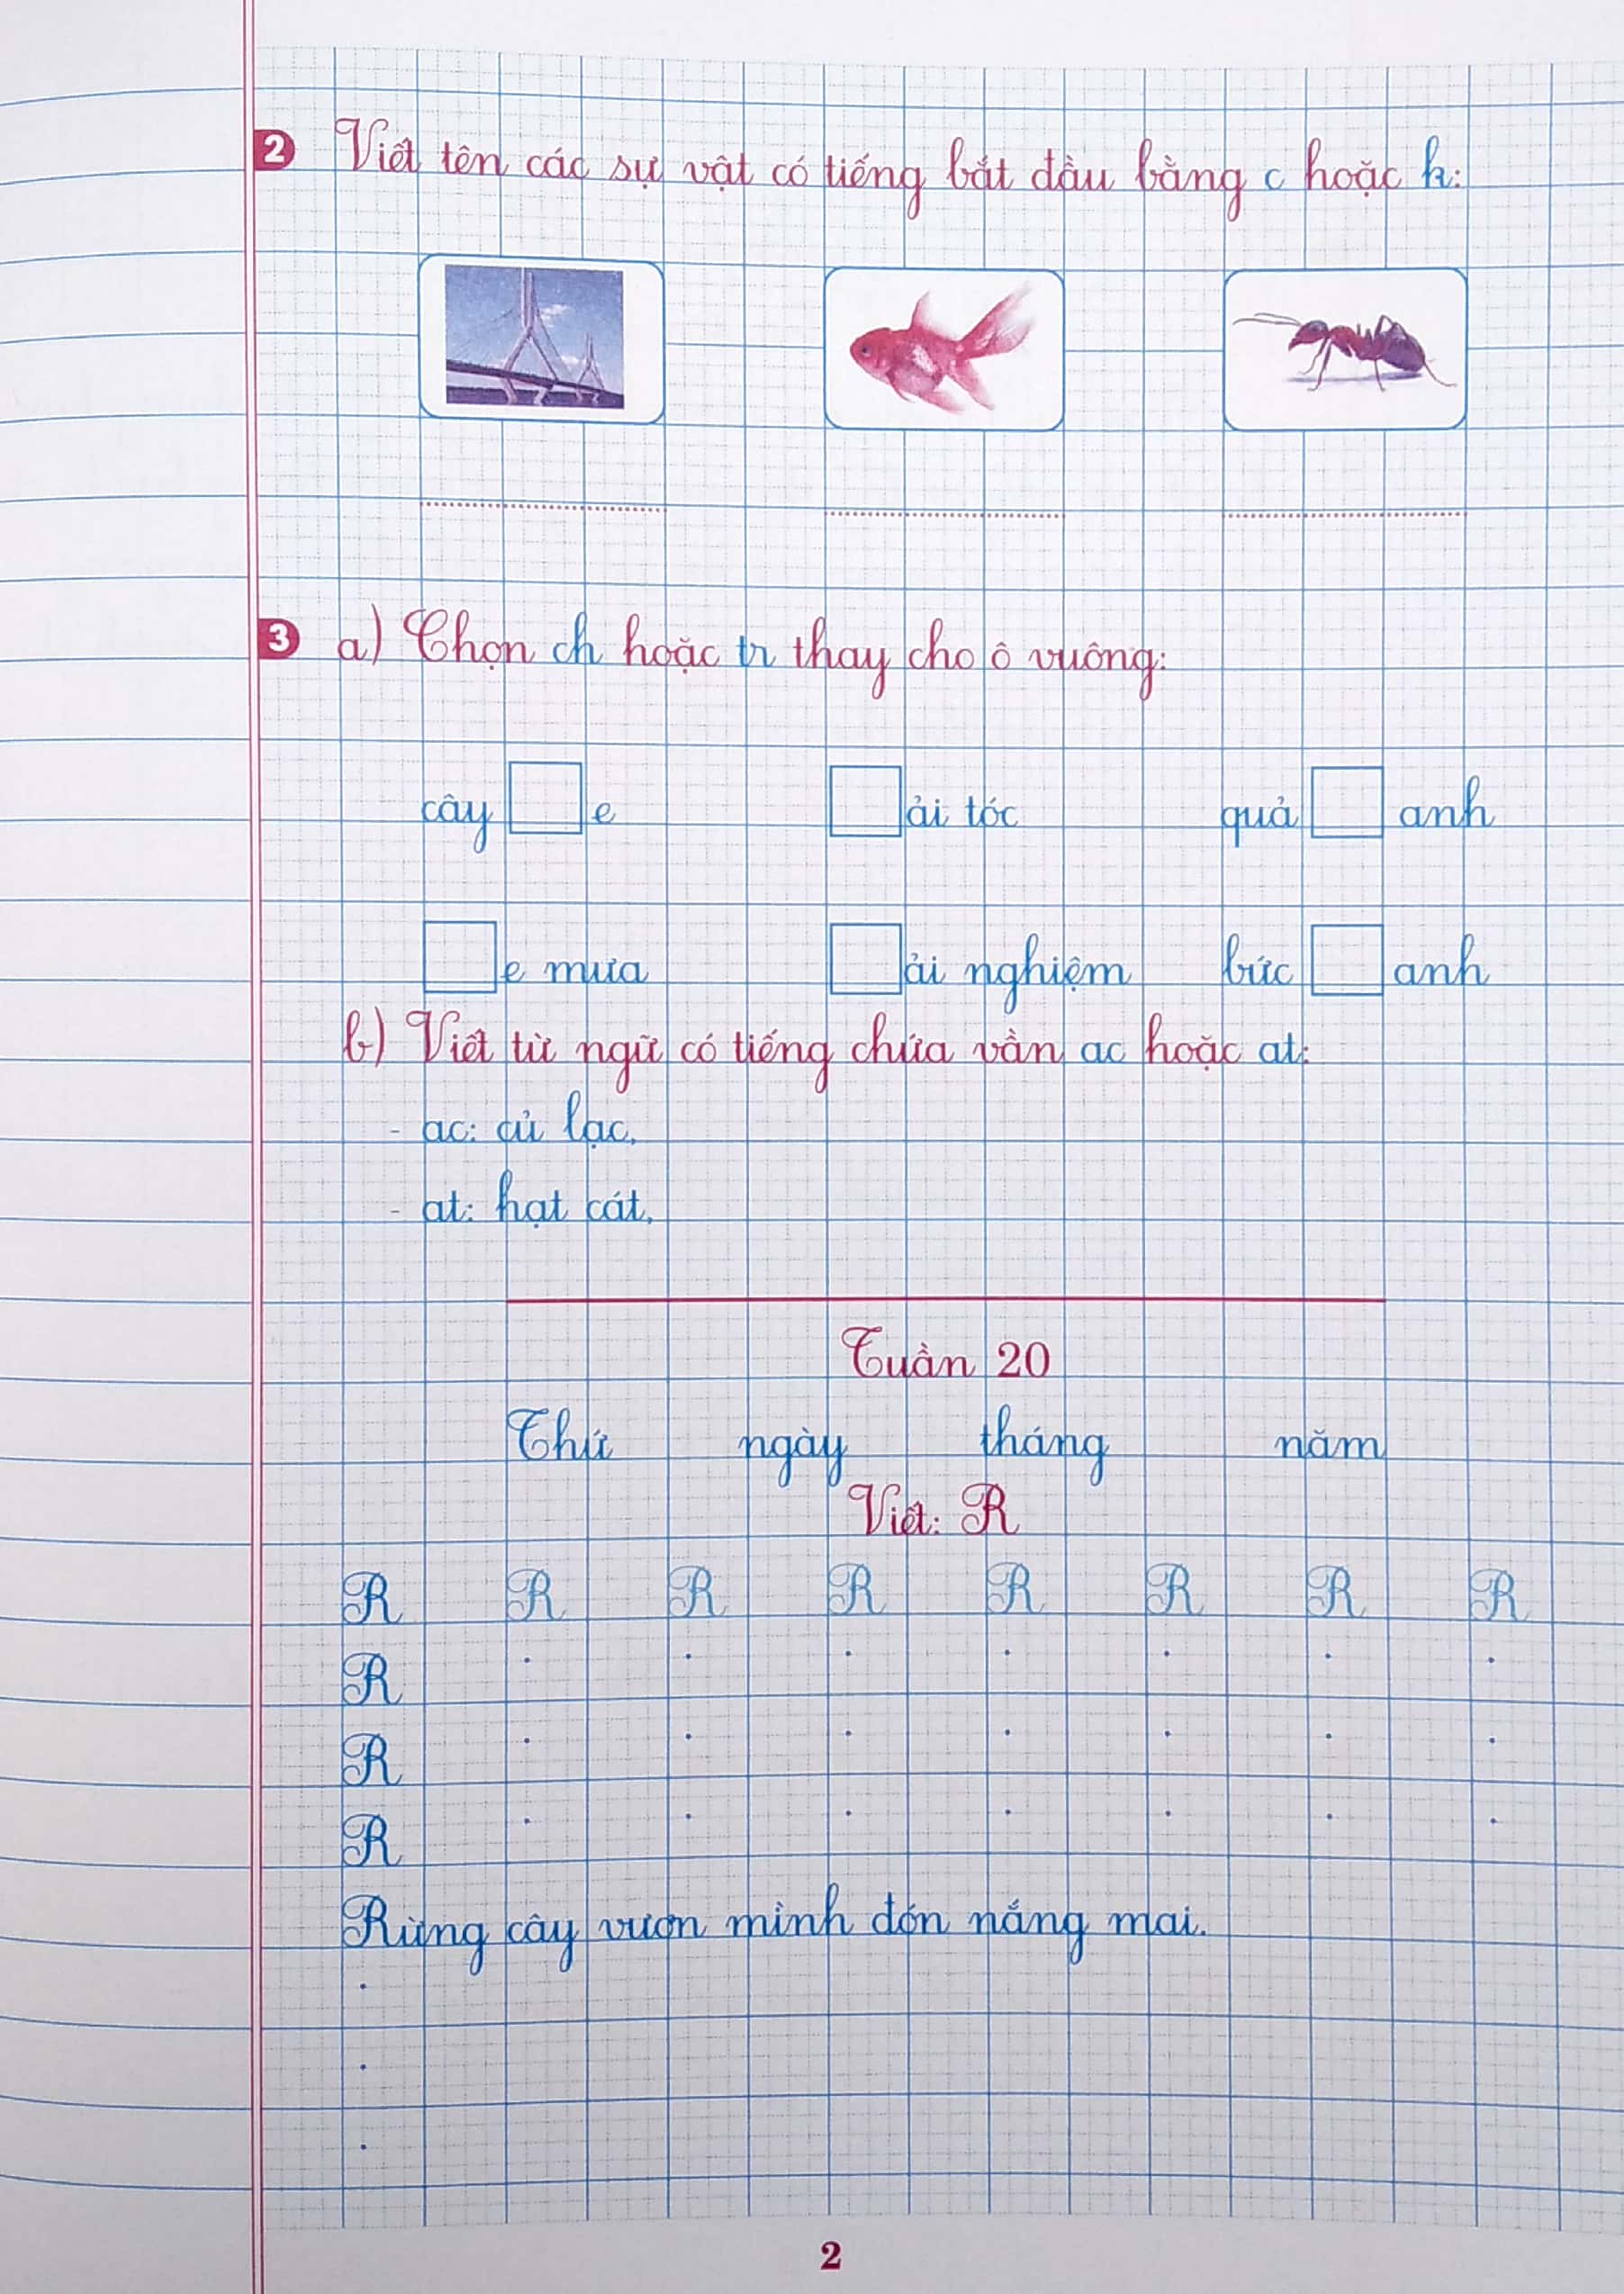 2 Viết tên các sự vật có tiếng bắt đầu bằng c hoặc k:
3 a) Chọn ch hoặc tr thay cho ô vuông:
cây e ải tóc quả anh
e mưa ải nghiệm bức anh
b) Viết từ ngữ có tiếng chứa vần ac hoặc at:
- ac: củ lạc,
- at: hạt cát,
Tuần 20
Thứ ngày tháng năm
Viết: R
R R R R R R R R
R
R
R
Rừng cây vươn mình đón nắng mai.
2